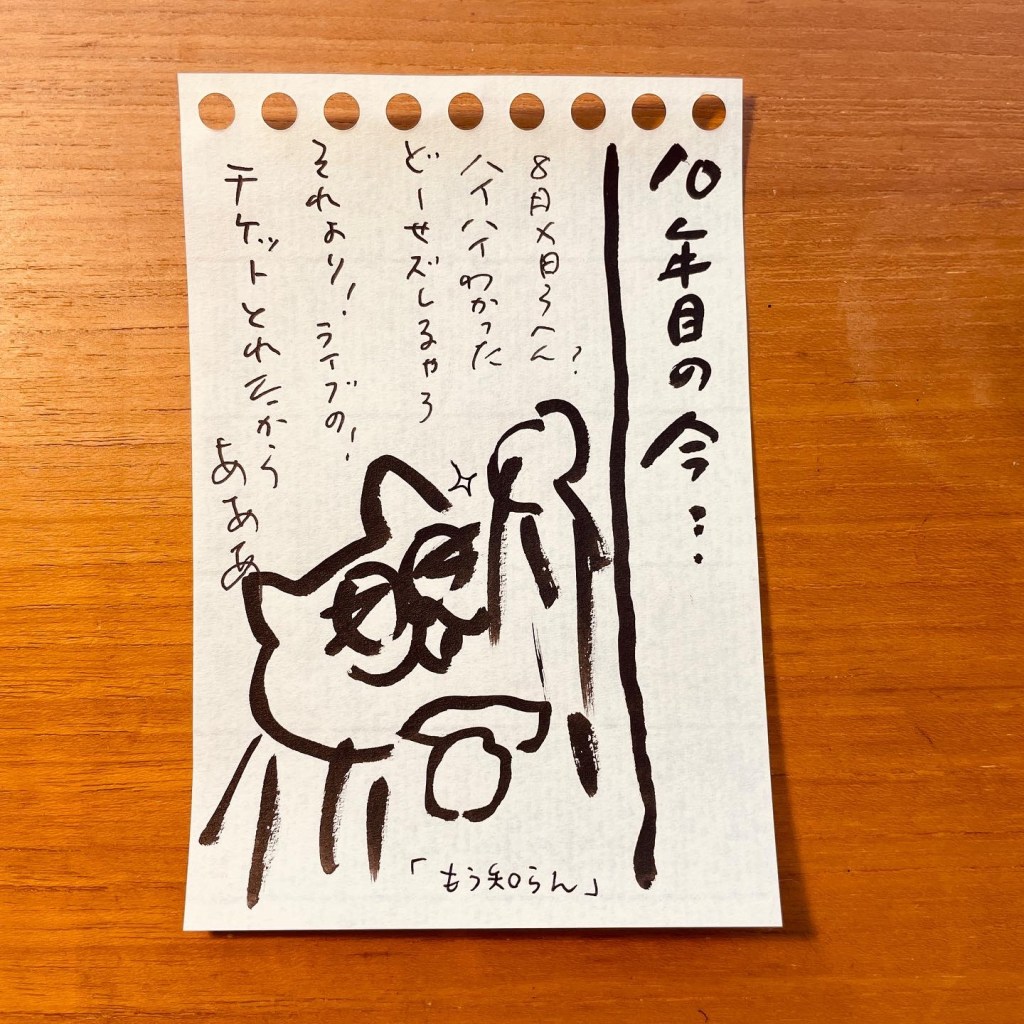 10年目の今…
8月×日うへん?
ハイハイわかった
どーせズレるやろ
それより!ライブの!
チケットとれたから
あああ
「もう知らん」